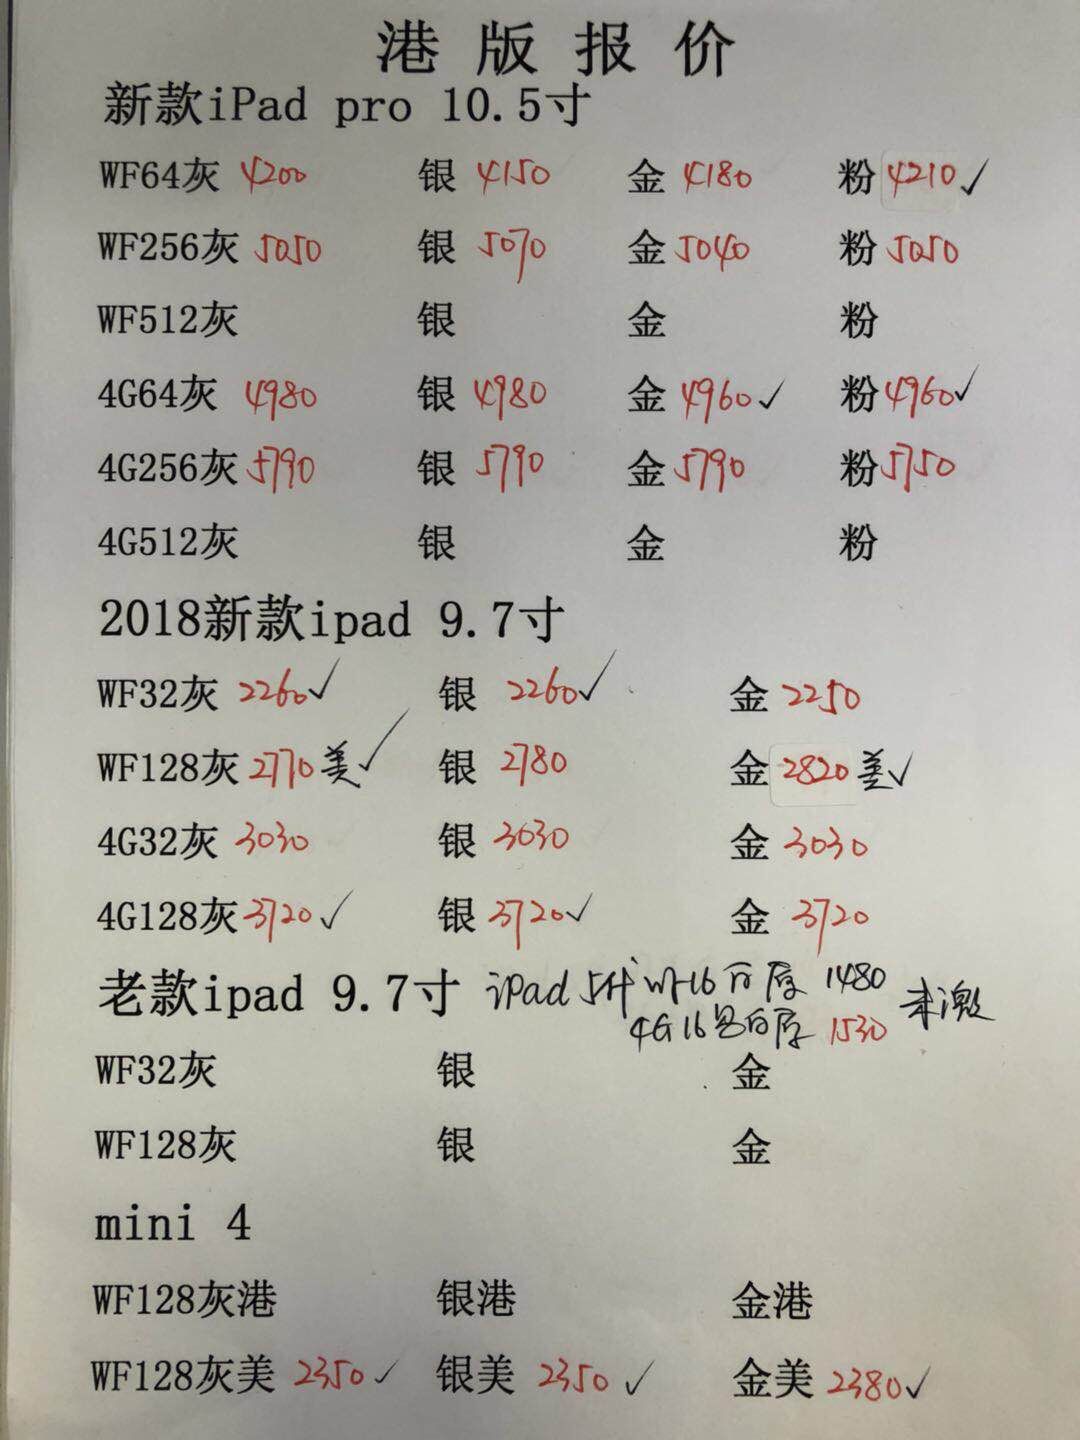 港版报价
新款iPad pro 10.5寸
WF64灰 4200 银 4150 金 4180 粉 4210 ✓
WF256灰 5050 银 5070 金 5040 粉 5050
WF512灰 银 金 粉
4G64灰 4980 银 4980 金 4960 ✓ 粉 4960 ✓
4G256灰 5790 银 5790 金 5790 粉 5750
4G512灰 银 金 粉
2018新款ipad 9.7寸
WF32灰 2260 ✓ 银 2260 ✓ 金 2250
WF128灰 2770 美 ✓ 银 2780 金 2820 美 ✓
4G32灰 3030 银 3030 金 3030
4G128灰 3720 ✓ 银 3720 ✓ 金 3720
老款ipad 9.7寸 iPad 5代 16 1480 未激
4G 16 1530
WF32灰 银 金
WF128灰 银 金
mini 4
WF128灰港 银港 金港
WF128灰美 2350 ✓ 银美 2350 ✓ 金美 2380 ✓